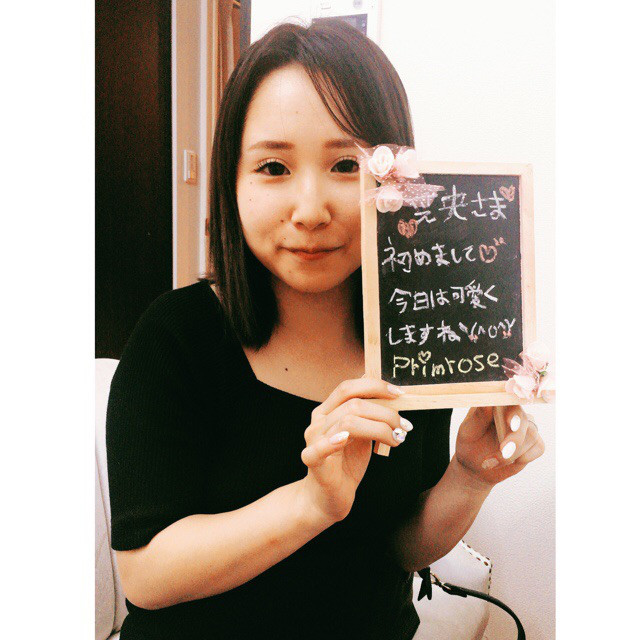 央さま
初めまして♡
今日は可愛く
しますねヽ(^o^)Y
Primrose